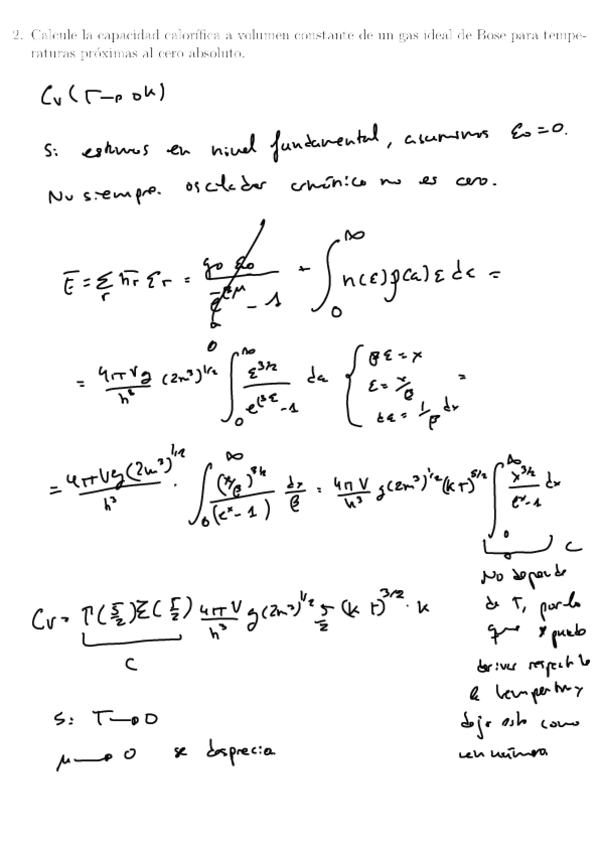 2. Calcule la capacidad calorífica a volumen constante de un gas ideal de Bose para tempe-
raturas próximas al cero absoluto.
Cv (T→0K)
Si estamos en nivel fundamental, asumimos ε₀=0.
No siempre. oscilador armónico no es cero.
Ē = Σ_r n̄_r ε_r = g₀ε₀ / (e^{-βμ} - 1) + ∫₀^∞ n(ε)g(ε)ε dε =
= 4πVg/h³ (2m³)^{1/2} ∫₀^∞ ε^{3/2} / (e^{βε} - 1) dε { βε = x
ε = x/β =
dε = 1/β dx
= 4πVg(2m³)^{1/2}/h³ · ∫₀^∞ (x/β)^{3/2} / (e^x - 1) dx/β = 4πV/h³ g(2m³)^{1/2} (kT)^{5/2} ∫₀^∞ x^{3/2} / (e^x - 1) dx
C
No depende
de T, por lo
que puedo
derivar respecto
la temperatura y
dejo esto como
Cv = Γ(5/2) ξ(5/2) 4πV/h³ g(2m³)^{1/2} 5/2 (kT)^{3/2} · k
C
Si T→0
μ→0 se desprecia